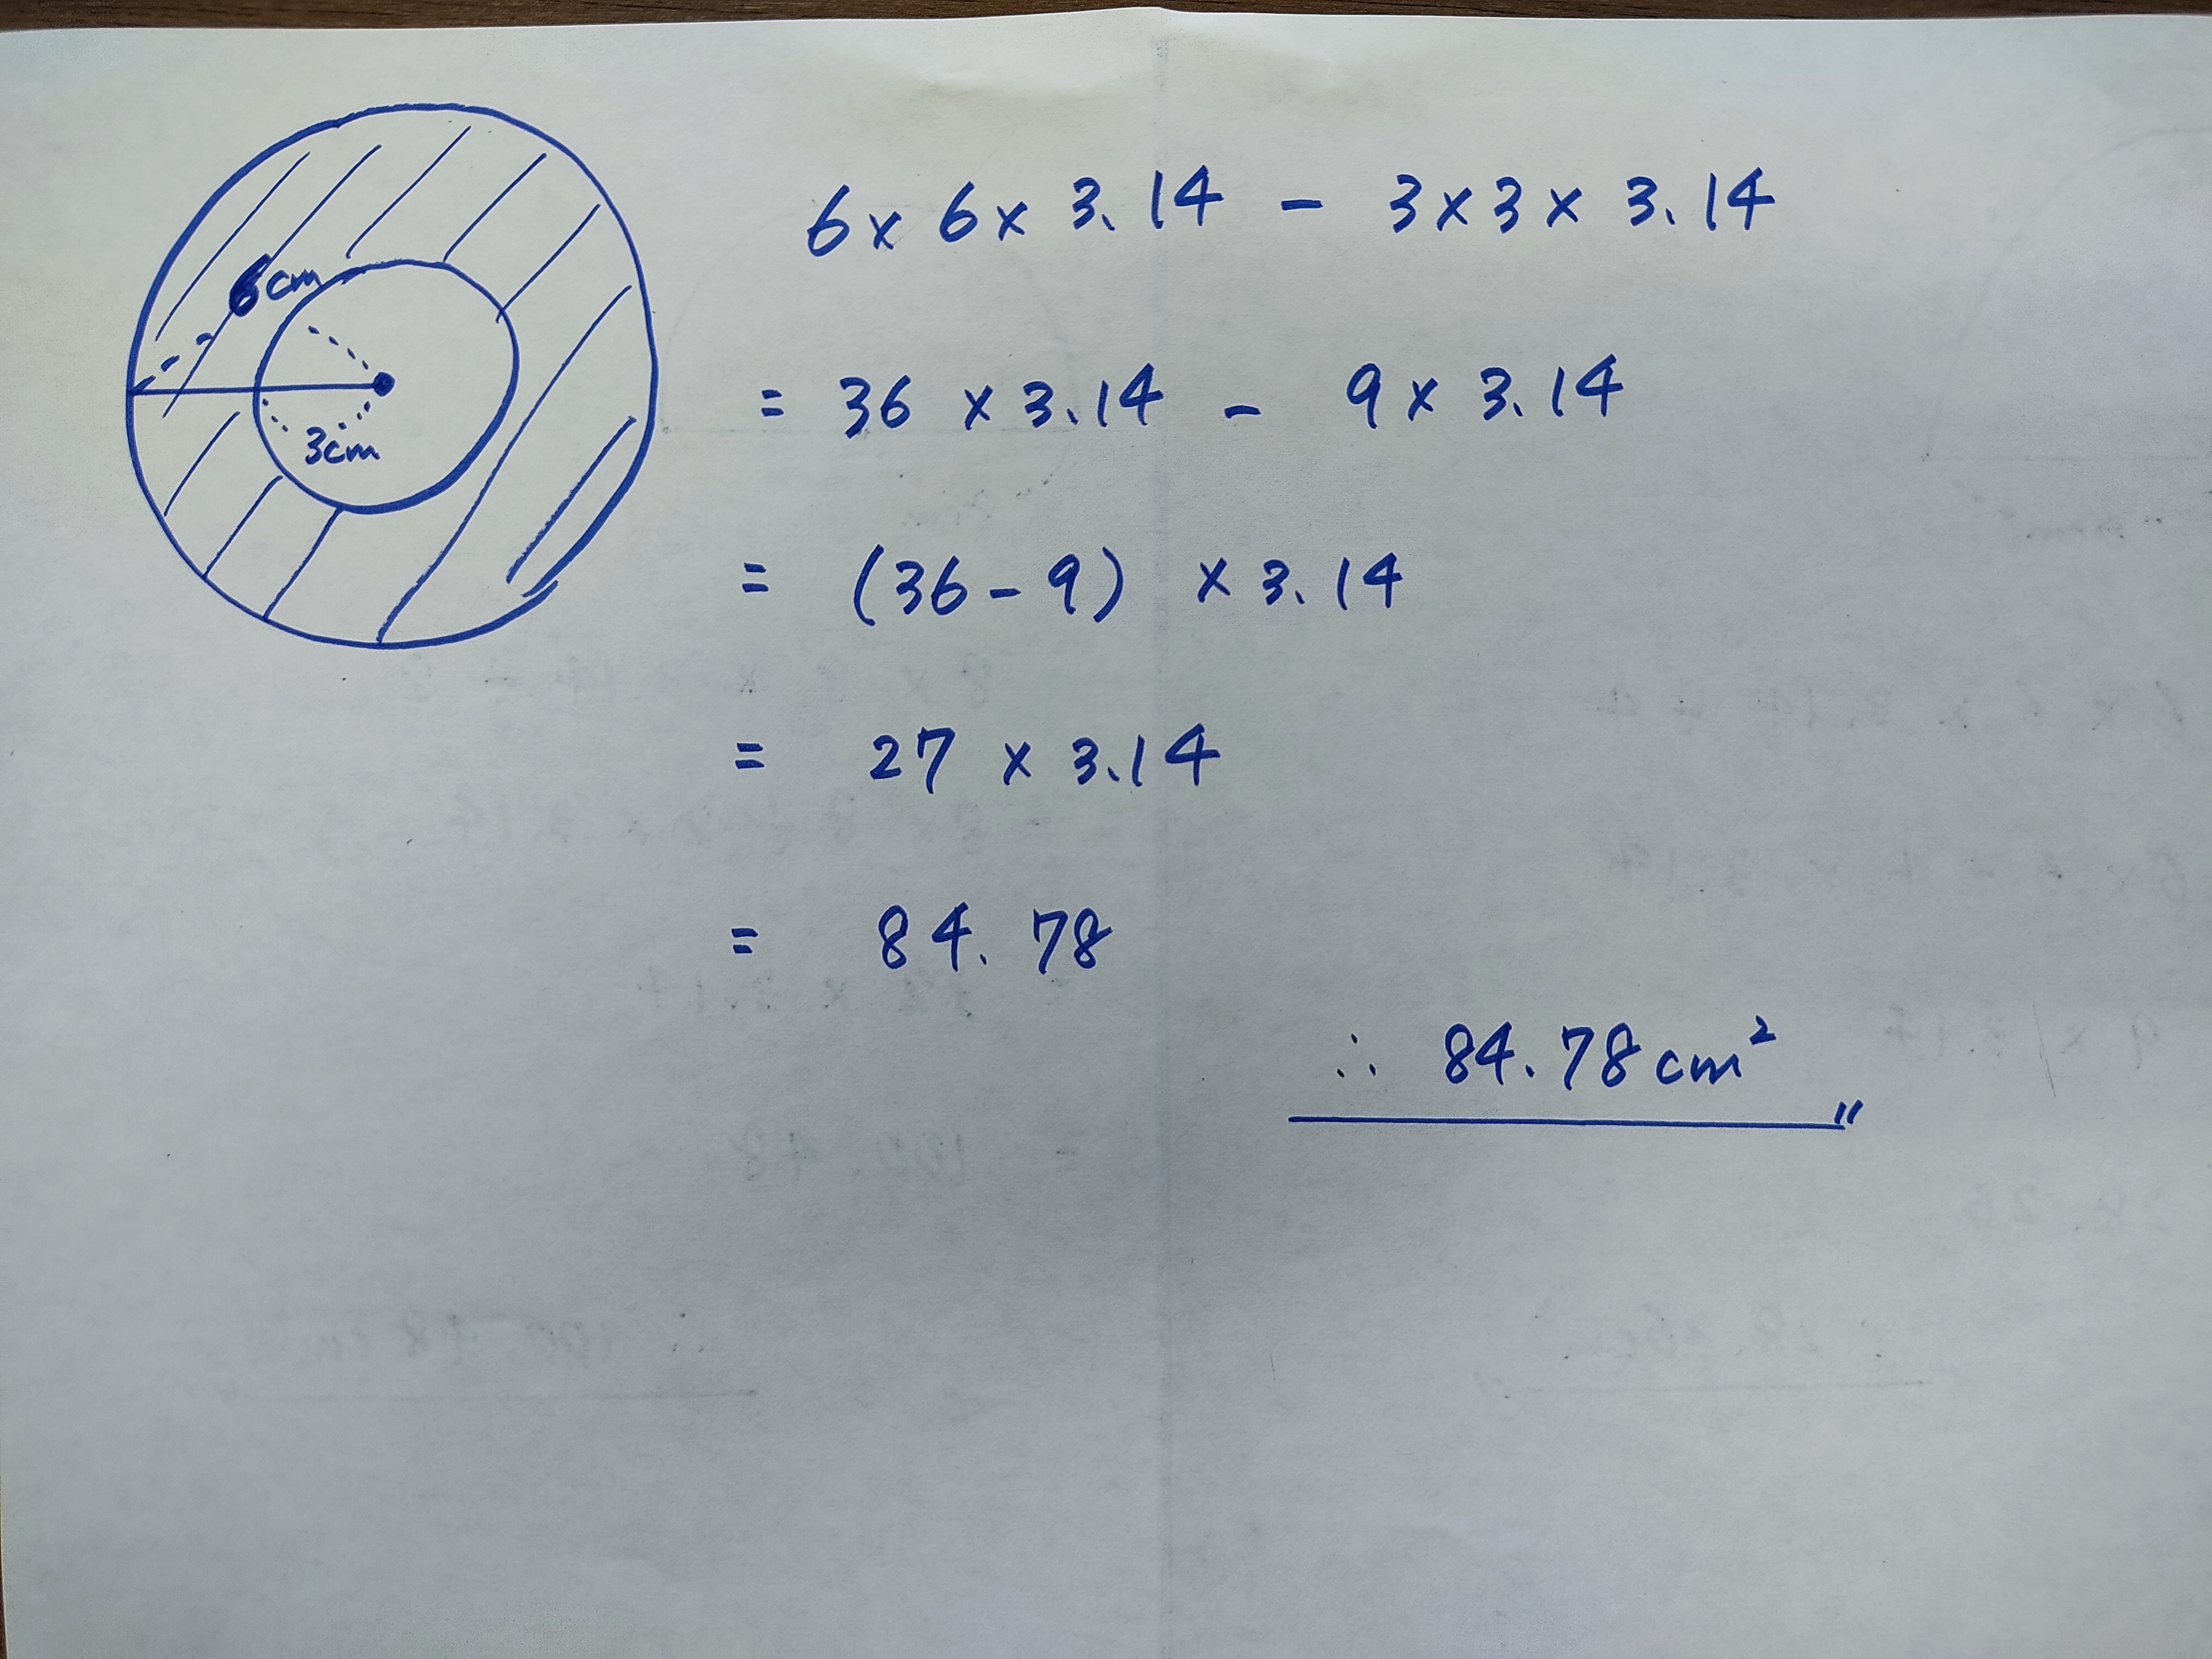 6cm
3cm
6 × 6 × 3.14 - 3 × 3 × 3.14
= 36 × 3.14 - 9 × 3.14
= (36 - 9) × 3.14
= 27 × 3.14
= 84.78
∴ 84.78 cm²